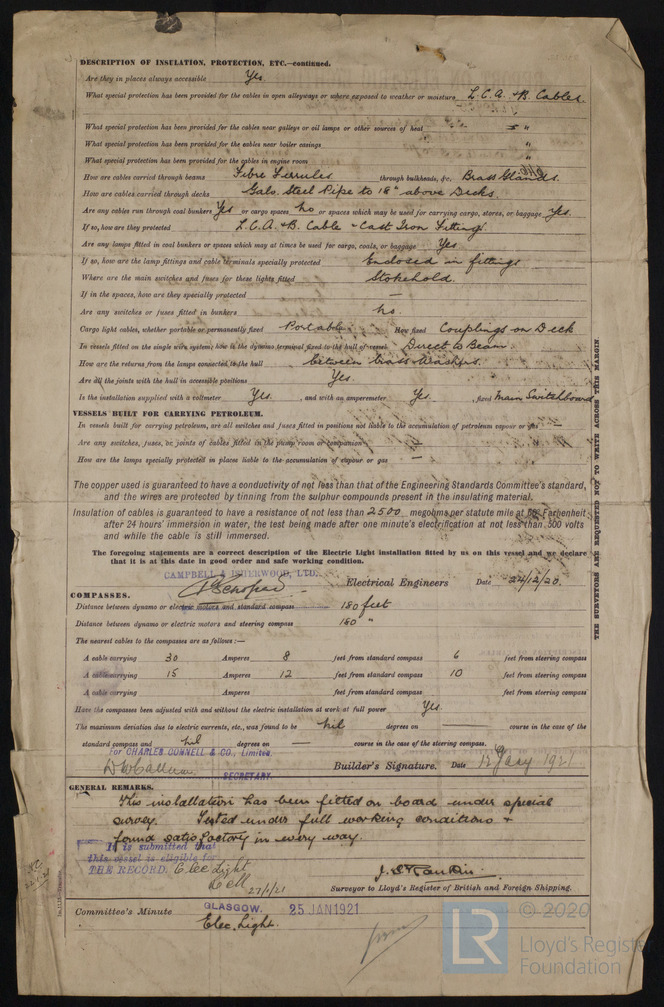 DESCRIPTION OF INSULATION, PROTECTION, ETC.—continued.
Are they in places always accessible Yes.
What special protection has been provided for the cables in open alleyways or where exposed to weather or moisture L.C.A. & B. Cables.
What special protection has been provided for the cables near galleys or oil lamps or other sources of heat "
What special protection has been provided for the cables near boiler casings "
What special protection has been provided for the cables in engine room "
How are cables carried through beams Fibre Ferrules through bulkheads, &c. Brass Glands.
How are cables carried through decks Galv. Steel Pipe to 18" above Decks.
Are any cables run through coal bunkers Yes or cargo spaces No or spaces which may be used for carrying cargo, stores, or baggage Yes.
If so, how are they protected L.C.A. & B. Cable & Cast Iron Fittings.
Are any lamps fitted in coal bunkers or spaces which may at times be used for cargo, coals, or baggage Yes
If so, how are the lamp fittings and cable terminals specially protected Enclosed in fittings
Where are the main switches and fuses for these lights fitted Stokehold.
If in the spaces, how are they specially protected —
Are any switches or fuses fitted in bunkers No.
Cargo light cables, whether portable or permanently fixed Portable How fixed Couplings on Deck
In vessels fitted on the single wire system, how is the dynamo terminal fixed to the hull of vessel Direct to Beam
How are the returns from the lamps connected to the hull between brass washers.
Are all the joints with the hull in accessible positions Yes.
Is the installation supplied with a voltmeter Yes. , and with an amperemeter Yes. , fixed Main Switchboard
VESSELS BUILT FOR CARRYING PETROLEUM.
In vessels built for carrying petroleum, are all switches and fuses fitted in positions not liable to the accumulation of petroleum vapour or gas —
Are any switches, fuses, or joints of cables fitted in the pump room or companion —
How are the lamps specially protected in places liable to the accumulation of vapour or gas —
The copper used is guaranteed to have a conductivity of not less than that of the Engineering Standards Committee's standard,
and the wires are protected by tinning from the sulphur compounds present in the insulating material.
Insulation of cables is guaranteed to have a resistance of not less than 2500 megohms per statute mile at 60° Fahrenheit
after 24 hours' immersion in water, the test being made after one minute's electrification at not less than 500 volts
and while the cable is still immersed.
The foregoing statements are a correct description of the Electric Light installation fitted by us on this vessel and we declare
that it is at this date in good order and safe working condition.
CAMPBELL & ISHERWOOD, LTD.
Electrical Engineers Date 24/12/20.
COMPASSES.
Distance between dynamo or electric motors and standard compass 180 feet
Distance between dynamo or electric motors and steering compass 180 "
The nearest cables to the compasses are as follows:—
A cable carrying 30 Amperes 8 feet from standard compass 6 feet from steering compass
A cable carrying 15 Amperes 12 feet from standard compass 10 feet from steering compass
A cable carrying Amperes feet from standard compass feet from steering compass
Have the compasses been adjusted with and without the electric installation at work at full power Yes.
The maximum deviation due to electric currents, etc., was found to be Nil degrees on — course in the case of the
standard compass and Nil degrees on — course in the case of the steering compass.
For CHARLES CONNELL & CO., Limited.
SECRETARY.
Builder's Signature. Date 12 Jany 1921
GENERAL REMARKS.
This installation has been fitted on board under special
survey. Tested under full working conditions &
found satisfactory in every way.
It is submitted that
this vessel is eligible for
THE RECORD. Elec Light
27/1/21
J. S. Rankin
Surveyor to Lloyd's Register of British and Foreign Shipping.
Committee's Minute GLASGOW. 25 JAN 1921
Elec. Light.
THE SURVEYORS ARE REQUESTED NOT TO WRITE ACROSS THIS MARGIN
© 2020
LR
Lloyd's Register
Foundation